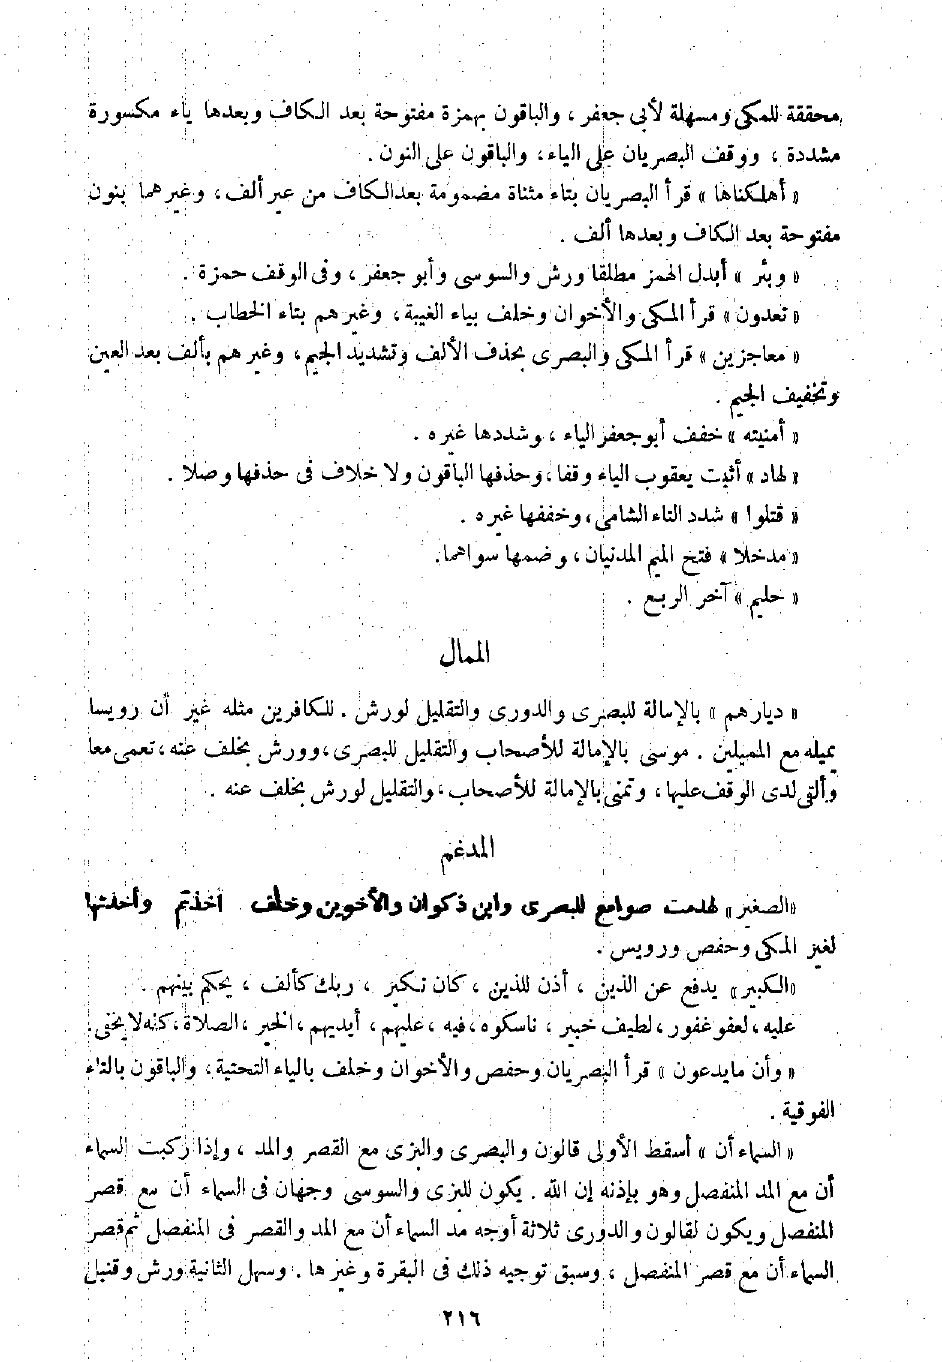 محققة للمكى ومسهلة لأبى جعفر ، والباقون بهمزة مفتوحة بعد الكاف وبعدها ياء مكسورة
مشددة ، ووقف البصريان على الياء ، والباقون على النون .
« أهلكناها » قرأ البصريان بتاء مثناة مضمومة بعد الكاف من عير ألف ، وغيرهما بنون
مفتوحة بعد الكاف وبعدها ألف .
« وبئر » أبدل الهمز مطلقا ورش والسوسى وأبو جعفر ، وفى الوقف حمزة .
« تعدون » قرأ المكى والأخوان وخلف بياء الغيبة ، وغيرهم بتاء الخطاب .
« معاجزين » قرأ المكى والبصرى بحذف الألف وتشديد الجيم ، وغيرهم بألف بعد العين
وتخفيف الجيم .
« أمنيته » خفف أبو جعفر الياء ، وشددها غيره .
« لهاد » أثبت يعقوب الياء وقفا ، وحذفها الباقون ولا خلاف فى حذفها وصلا .
« قتلوا » شدد التاء الشامى ، وخففها غيره .
« مدخلا » فتح الميم المدنيان ، وضمها سواهما .
« حليم » آخر الربع .
الممال
« ديارهم » بالإمالة للبصرى والدورى والتقليل لورش . للكافرين مثله غير أن رويسا
يميله مع المميلين . موسى بالإمالة للأصحاب والتقليل للبصرى ، وورش بخلف عنه ، تعمى معا
وألتى لدى الوقف عليها ، وتمنى بالإمالة للأصحاب ، والتقليل لورش بخلف عنه .
المدغم
« الصغير » لهدمت صوامع للبصرى وابن ذكوان والأخوين وخلف أخذتم وأخذتها
لغير المكى وحفص ورويس .
« الكبير » يدفع عن الذين ، أذن للذين ، كان نكير ، ربك كألف ، يحكم بينهم .
عليه ، لعفو غفور ، لطيف خبير ، ناسكوه ، فيه ، عليهم ، أيديهم ، الخير ، الصلاة ، كله لا يخفى .
« وأن ما يدعون » قرأ البصريان وحفص والأخوان وخلف بالياء التحتية ، والباقون بالتاء
الفوقية .
« السماء أن » أسقط الأولى قالون والبصرى والبزى مع القصر والمد ، وإذا ركبت السماء
أن مع المد المنفصل وهو بإذنه إن الله . يكون للبزى والسوسى وجهان فى السماء أن مع قصر
المنفصل ويكون لقالون والدورى ثلاثة أوجه مد السماء أن مع المد والقصر فى المنفصل ثم قصر
السماء أن مع قصر المنفصل ، وسبق توجيه ذلك فى البقرة وغيرها . وسهل الثانية ورش وقنبل
٢١٦